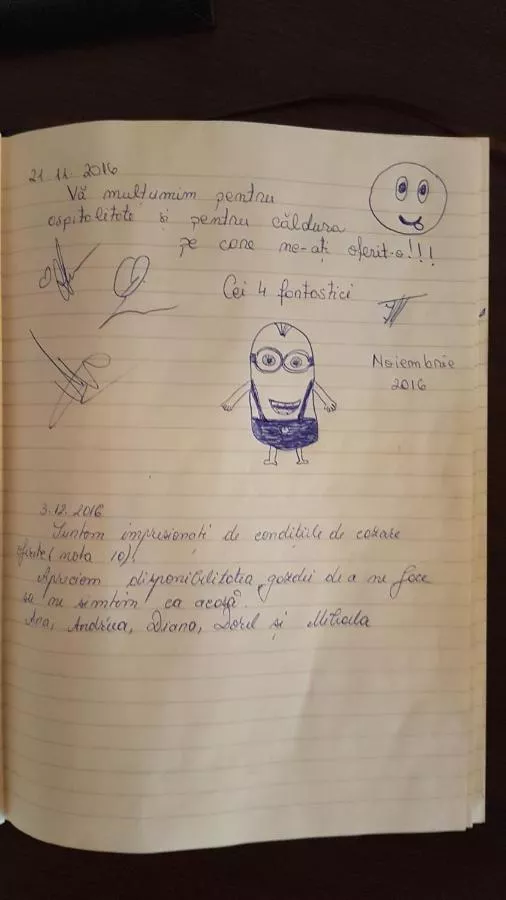 21.11.2016
Vă mulțumim pentru
ospitalitate și pentru căldura
pe care ne-ați oferit-o!!!
Cei 4 fantastici
Noiembrie
2016
3.12.2016
Suntem impresionați de condițiile de cazare
oferite (nota 10)!
Apreciem disponibilitatea gazdei de a ne face
să ne simțim ca acasă.
Ana, Andreea, Diana, Dorel și Mihaela